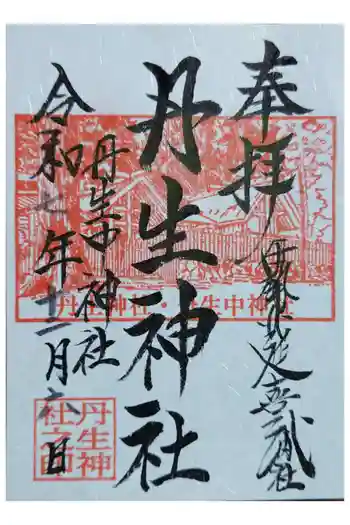 奉拝
丹生神社
丹生中神社
令和 年十二月六日
丹生神社・丹生中神社
丹生神
社之印